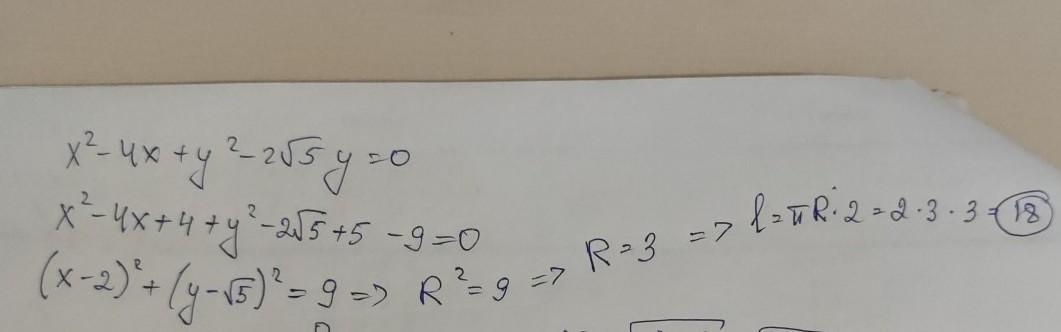 x² - 4x + y² - 2√5 y = 0
x² - 4x + 4 + y² - 2√5 + 5 - 9 = 0
(x - 2)² + (y - √5)² = 9 => R² = 9 => R = 3 => l = πR · 2 = 2 · 3 · 3 = 18